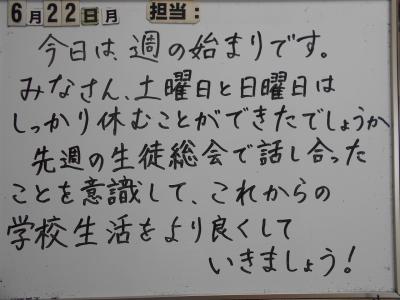 6月22日月 担当:
今日は、週の始まりです。
みなさん、土曜日と日曜日は
しっかり休むことができたでしょうか
先週の生徒総会で話し合った
ことを意識して、これからの
学校生活をより良くして
いきましょう!